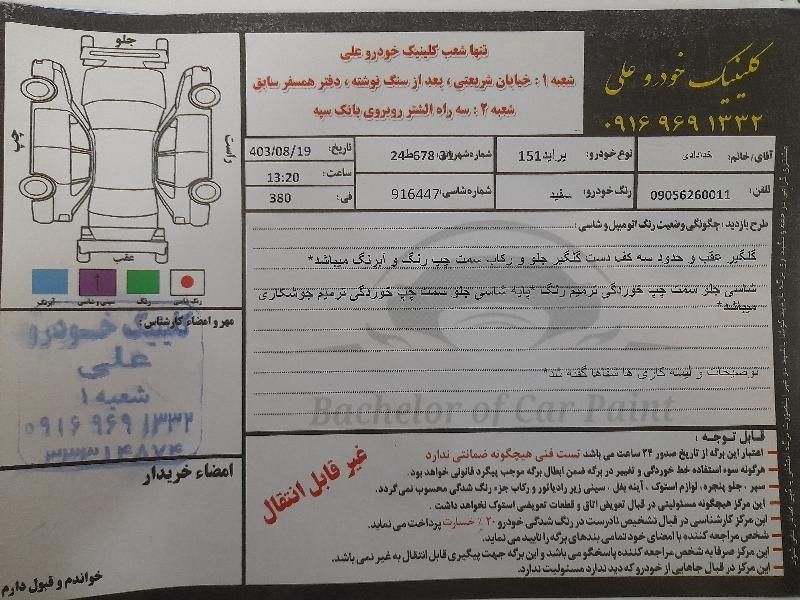 کلینیک خودرو علی
۰۹۱۶ ۹۶۹ ۱۳۳۲
تنها شعب کلینیک خودرو علی
شعبه ۱ : خیابان شریعتی ، بعد از سنگ نوشته ، دفتر همسفر سابق
شعبه ۲ : سه راه الشتر روبروی بانک سپه
جلو
راست
چپ
عقب
رنگ شاسی
رنگ
سینی و شاسی
آبرنگ
آقای/خانم: خدادادی
نوع خودرو: پراید151
شماره شهربانی: 24ط678 31
تاریخ: 403/08/19
ساعت: 13:20
تلفن: 09056260011
رنگ خودرو: سفید
شماره شاسی: 916447
فی: 380
طرح بازدید: چگونگی وضعیت رنگ اتومبیل و شاسی:
گلگیر عقب و حدود سه کف دست گلگیر جلو و رکاب سمت چپ رنگ و آبرنگ میباشد*
شاسی جلو سمت چپ خوردگی ترمیم رنگ *پایه شاسی جلو سمت چپ خوردگی ترمیم جوشکاری
میباشد*
توضیحات و لیسه کاری ها شفاها گفته شد*
Bachelor of Car Paint
مهر و امضاء کارشناس:
کلینیک خودرو
علی
شعبه ۱
۰۹۱۶ ۹۶۹ ۱۳۳۲
امضاء خریدار
خواندم و قبول دارم
غیر قابل انتقال
قابل توجه :
اعتبار این برگه از تاریخ صدور ۲۴ ساعت می باشد تست فنی هیچگونه ضمانتی ندارد
هرگونه سوء استفاده خط خوردگی و تغییر در برگه ضمن ابطال برگه موجب پیگرد قانونی خواهد بود.
سپر ، جلو پنجره ، لوازم استوک ، آینه بغل ، سینی زیر رادیاتور و رکاب جزء رنگ شدگی محسوب نمی گردد.
این مرکز هیچگونه مسئولیتی در قبال تعویض اتاق و قطعات تعویضی استوک نخواهد داشت .
این مرکز کارشناسی در قبال تشخیص نادرست در رنگ شدگی خودرو ۲۰٪ خسارت پرداخت می نماید.
شخص مراجعه کننده با امضای خود تمامی بندهای برگه را تایید می نماید.
این مرکز صرفا به شخص مراجعه کننده پاسخگو می باشد و این برگه جهت پیگیری قابل انتقال به غیر نمی باشد.
این مرکز در قبال جاهایی از خودرو که دید ندارد مسئولیت ندارد.